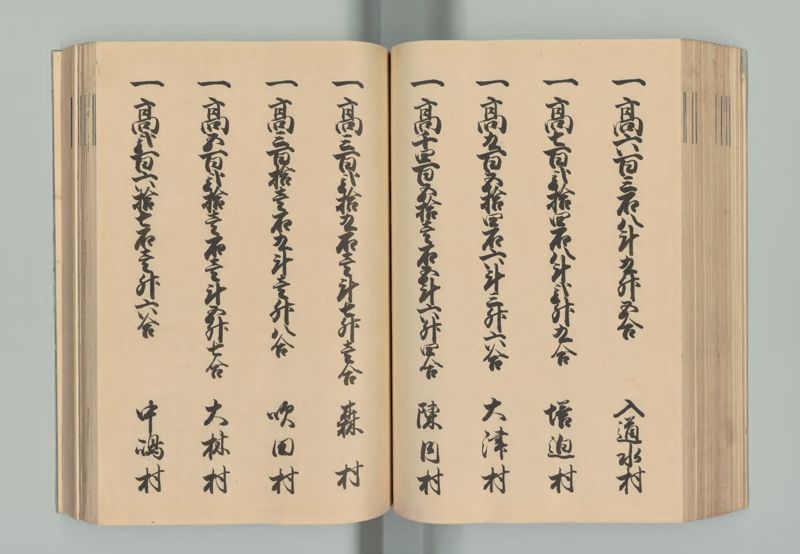 一高六百三石八斗九升五合 入道水村
一高七百弐拾四石八斗弐升九合 塔迫村
一高九百五拾四石六斗三升六合 大津村
一高千四百五拾壱石五斗六升四合 陳内村
一高三百弐拾九石壱斗七升壱合 森村
一高三百拾壱石九斗壱升八合 吹田村
一高五百弐拾壱石壱斗五升七合 大林村
一高弐百六拾七石壱升六合 中嶋村